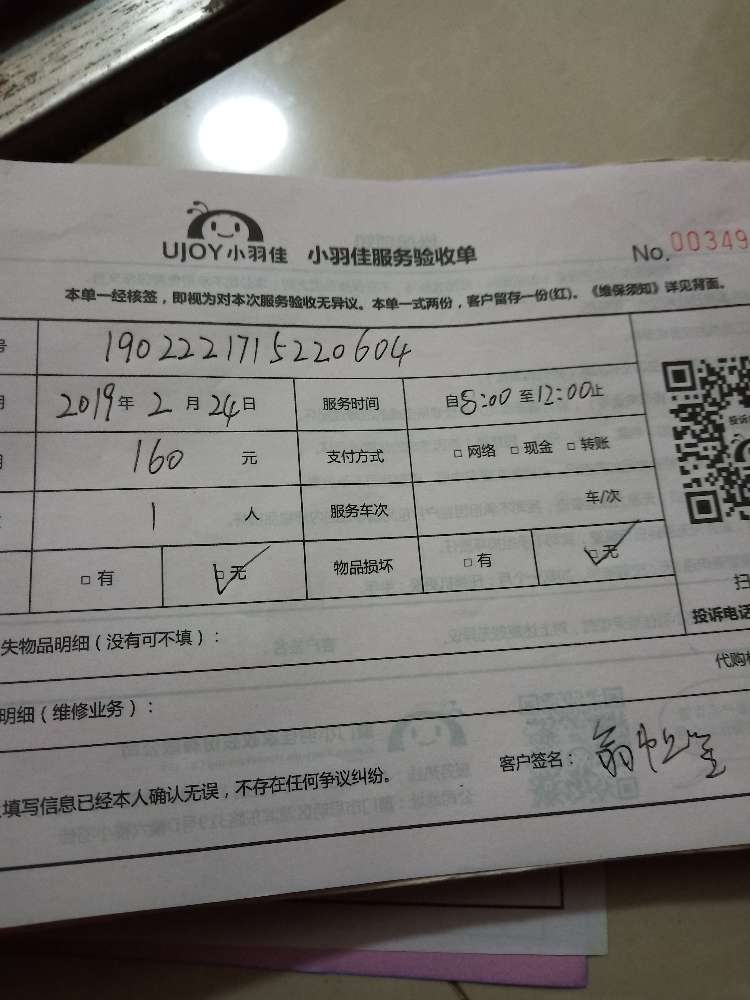 UJOY小羽佳 小羽佳服务验收单 No. 00349
本单一经核签，即视为对本次服务验收无异议。本单一式两份，客户留存一份(红)。《维保须知》详见背面。
号 1902221715220604
期 2019年 2月 24日 服务时间 自8:00至12:00止
用 160 元 支付方式 □网络 □现金 □转账
1 人 服务车次 车/次
□有 □无 物品损坏 □有 □无
扫
投诉电话
失物品明细（没有可不填）：
代购
明细（维修业务）：
客户签名：
填写信息已经本人确认无误，不存在任何争议纠纷。